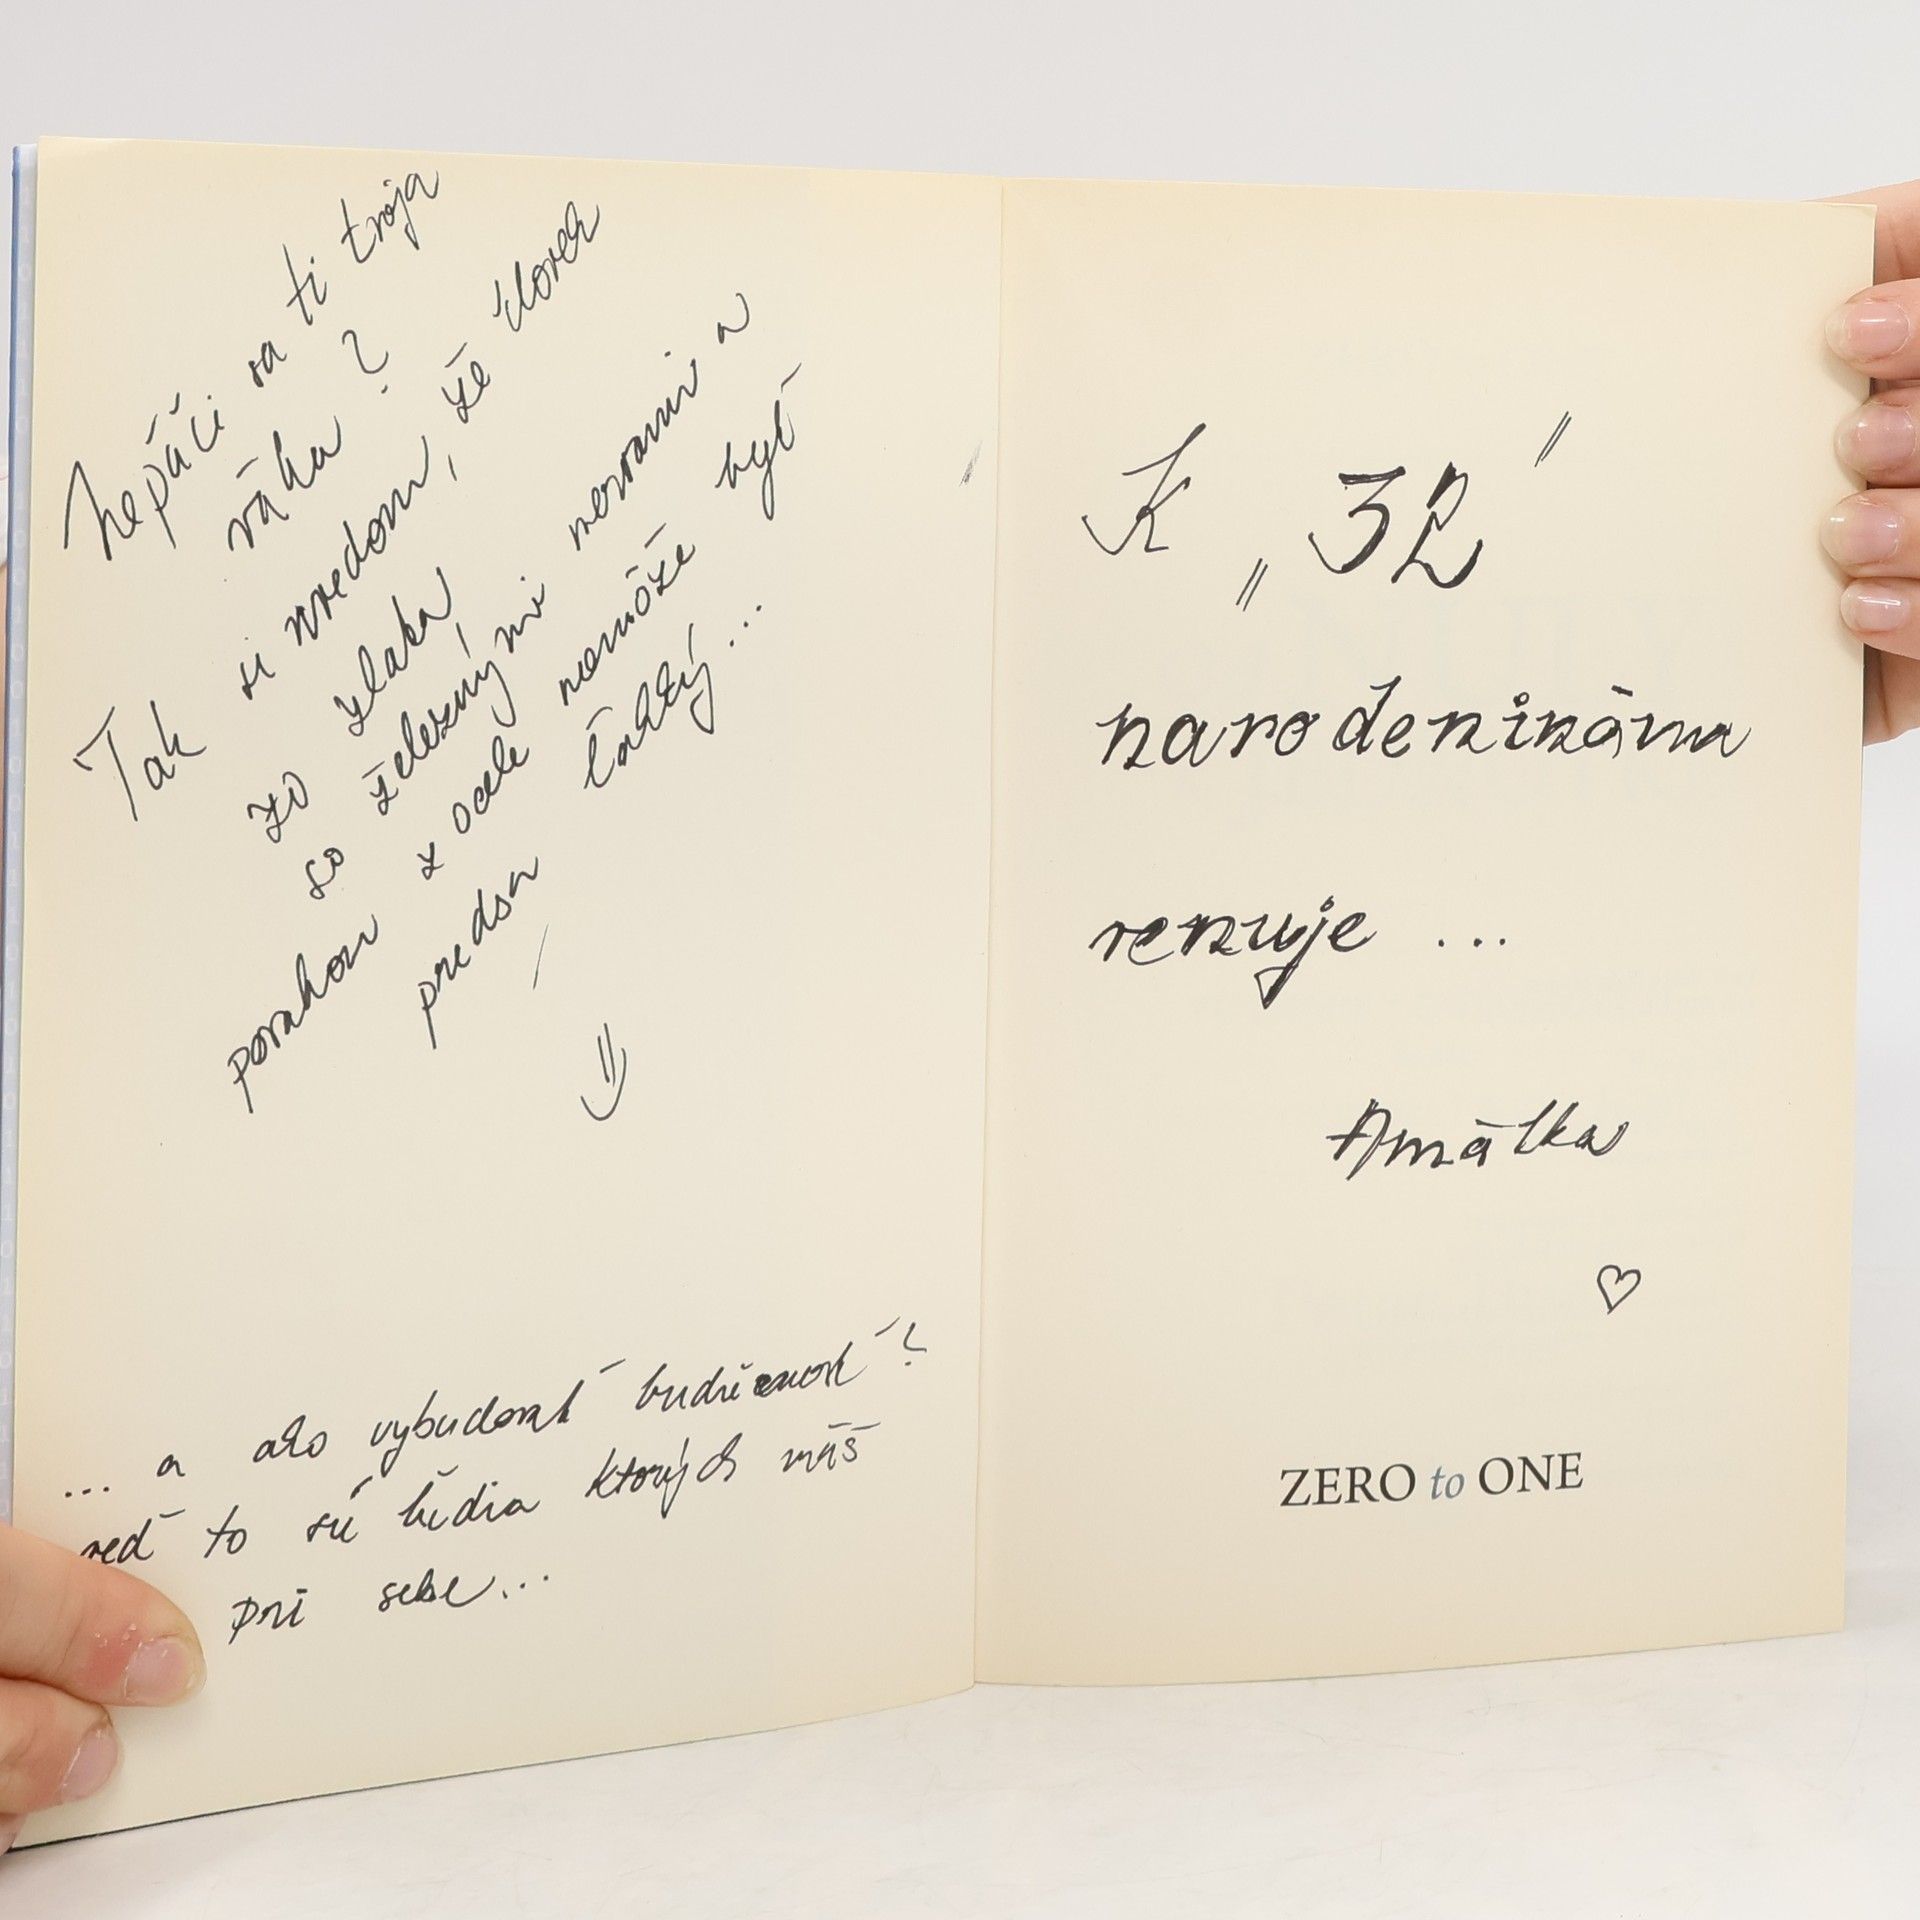 Nepáči sa ti tvoja
váha?
Tak si uvedom, že človek
zo zlata,
so železnými nervami a
povahou z ocele nemôže byť
predsa ľahký...
... a ako vybudovať budúcnosť?
veď to sú ľudia ktorých máš
pri sebe...
K „32“
narodeninám
venuje ...
Amálka
♡
ZERO to ONE